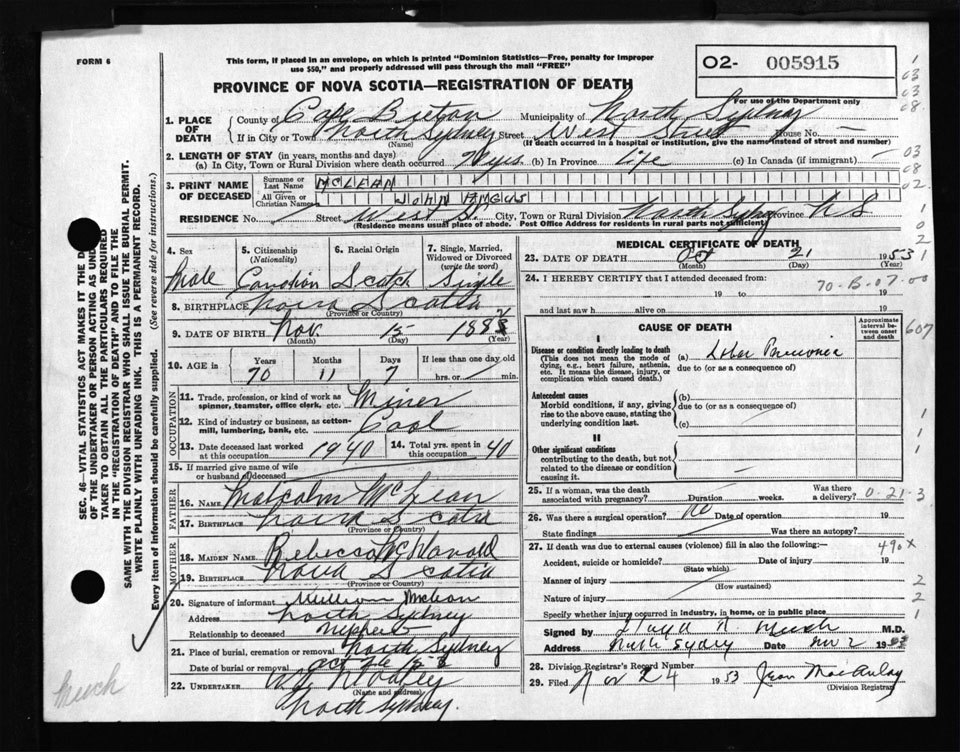 FORM 6
This form, if placed in an envelope, on which is printed "Dominion Statistics—Free, penalty for improper
use $50," and properly addressed will pass through the mail "FREE"
O2- 005915
For use of the Department only
PROVINCE OF NOVA SCOTIA—REGISTRATION OF DEATH
1. PLACE OF DEATH
County of Cape Breton Municipality of North Sydney
If in City or Town North Sydney Street West Street House No. —
(Name) (If death occurred in a hospital or institution, give the name instead of street and number)
2. LENGTH OF STAY (in years, months and days)
(a) In City, Town or Rural Division where death occurred yrs. (b) In Province life (c) In Canada (if immigrant) —
3. PRINT NAME OF DECEASED
Surname or Last Name MCLEAN
All Given or Christian Names JOHN ANGUS
RESIDENCE No. Street West St. City, Town or Rural Division North Sydney Province N S
(Residence means usual place of abode. Post Office Address for residents in rural parts not sufficient)
4. Sex Male
5. Citizenship (Nationality) Canadian
6. Racial Origin Scotch
7. Single, Married, Widowed or Divorced (write the word) Single
8. BIRTHPLACE Nova Scotia
(Province or Country)
9. DATE OF BIRTH Nov. 15 188
(Month) (Day) (Year)
10. AGE in Years 70 Months 11 Days 7 If less than one day old hrs. or min.
OCCUPATION
11. Trade, profession, or kind of work as spinner, teamster, office clerk, etc. Miner
12. Kind of industry or business, as cotton-mill, lumbering, bank, etc. Coal
13. Date deceased last worked at this occupation 1940
14. Total yrs. spent in this occupation 40
15. If married give name of wife or husband of deceased
FATHER
16. NAME Malcolm McLean
17. BIRTHPLACE Nova Scotia
(Province or Country)
MOTHER
18. MAIDEN NAME Rebecca McDonald
19. BIRTHPLACE Nova Scotia
(Province or Country)
20. Signature of informant McLean
Address North Sydney
Relationship to deceased
21. Place of burial, cremation or removal North Sydney
Date of burial or removal Oct
22. UNDERTAKER
(Name and address)
North Sydney.
MEDICAL CERTIFICATE OF DEATH
23. DATE OF DEATH Oct 21 1953
(Month) (Day) (Year)
24. I HEREBY CERTIFY that I attended deceased from:
19 to 19
and last saw h alive on 19
70-B-07-00
CAUSE OF DEATH
Approximate interval between onset and death
I
Disease or condition directly leading to death
(This does not mean the mode of dying, e.g., heart failure, asthenia, etc. It means the disease, injury, or complication which caused death.)
(a) Lobar Pneumonia
due to (or as a consequence of)
Antecedent causes
Morbid conditions, if any, giving rise to the above cause, stating the underlying condition last.
(b)
due to (or as a consequence of)
(c)
II
Other significant conditions
contributing to the death, but not related to the disease or condition causing it.
25. If a woman, was the death associated with pregnancy? Duration weeks. Was there a delivery?
0-21-3
26. Was there a surgical operation? no Date of operation 19
State findings Was there an autopsy?
27. If death was due to external causes (violence) fill in also the following:—
490x
Accident, suicide or homicide? Date of injury 19
(State which)
Manner of injury
(How sustained)
Nature of injury
Specify whether injury occurred in industry, in home, or in public place
Signed by M.D.
Address North Sydney Date Nov 2 19
28. Division Registrar's Record Number
29. Filed Nov 24 1953 Jean MacAulay
(Division Registrar)
SEC. 46—VITAL STATISTICS ACT MAKES IT THE D
OF THE UNDERTAKER OR PERSON ACTING AS UND
TAKER TO OBTAIN ALL THE PARTICULARS REQUIRED
IN THE "REGISTRATION OF DEATH" AND TO FILE THE
SAME WITH THE DIVISION REGISTRAR WHO SHALL ISSUE THE BURIAL PERMIT.
WRITE PLAINLY WITH UNFADING INK. THIS IS A PERMANENT RECORD.
Every item of information should be carefully supplied. (See reverse side for instructions.)
03
03
08
03
08
02.
607